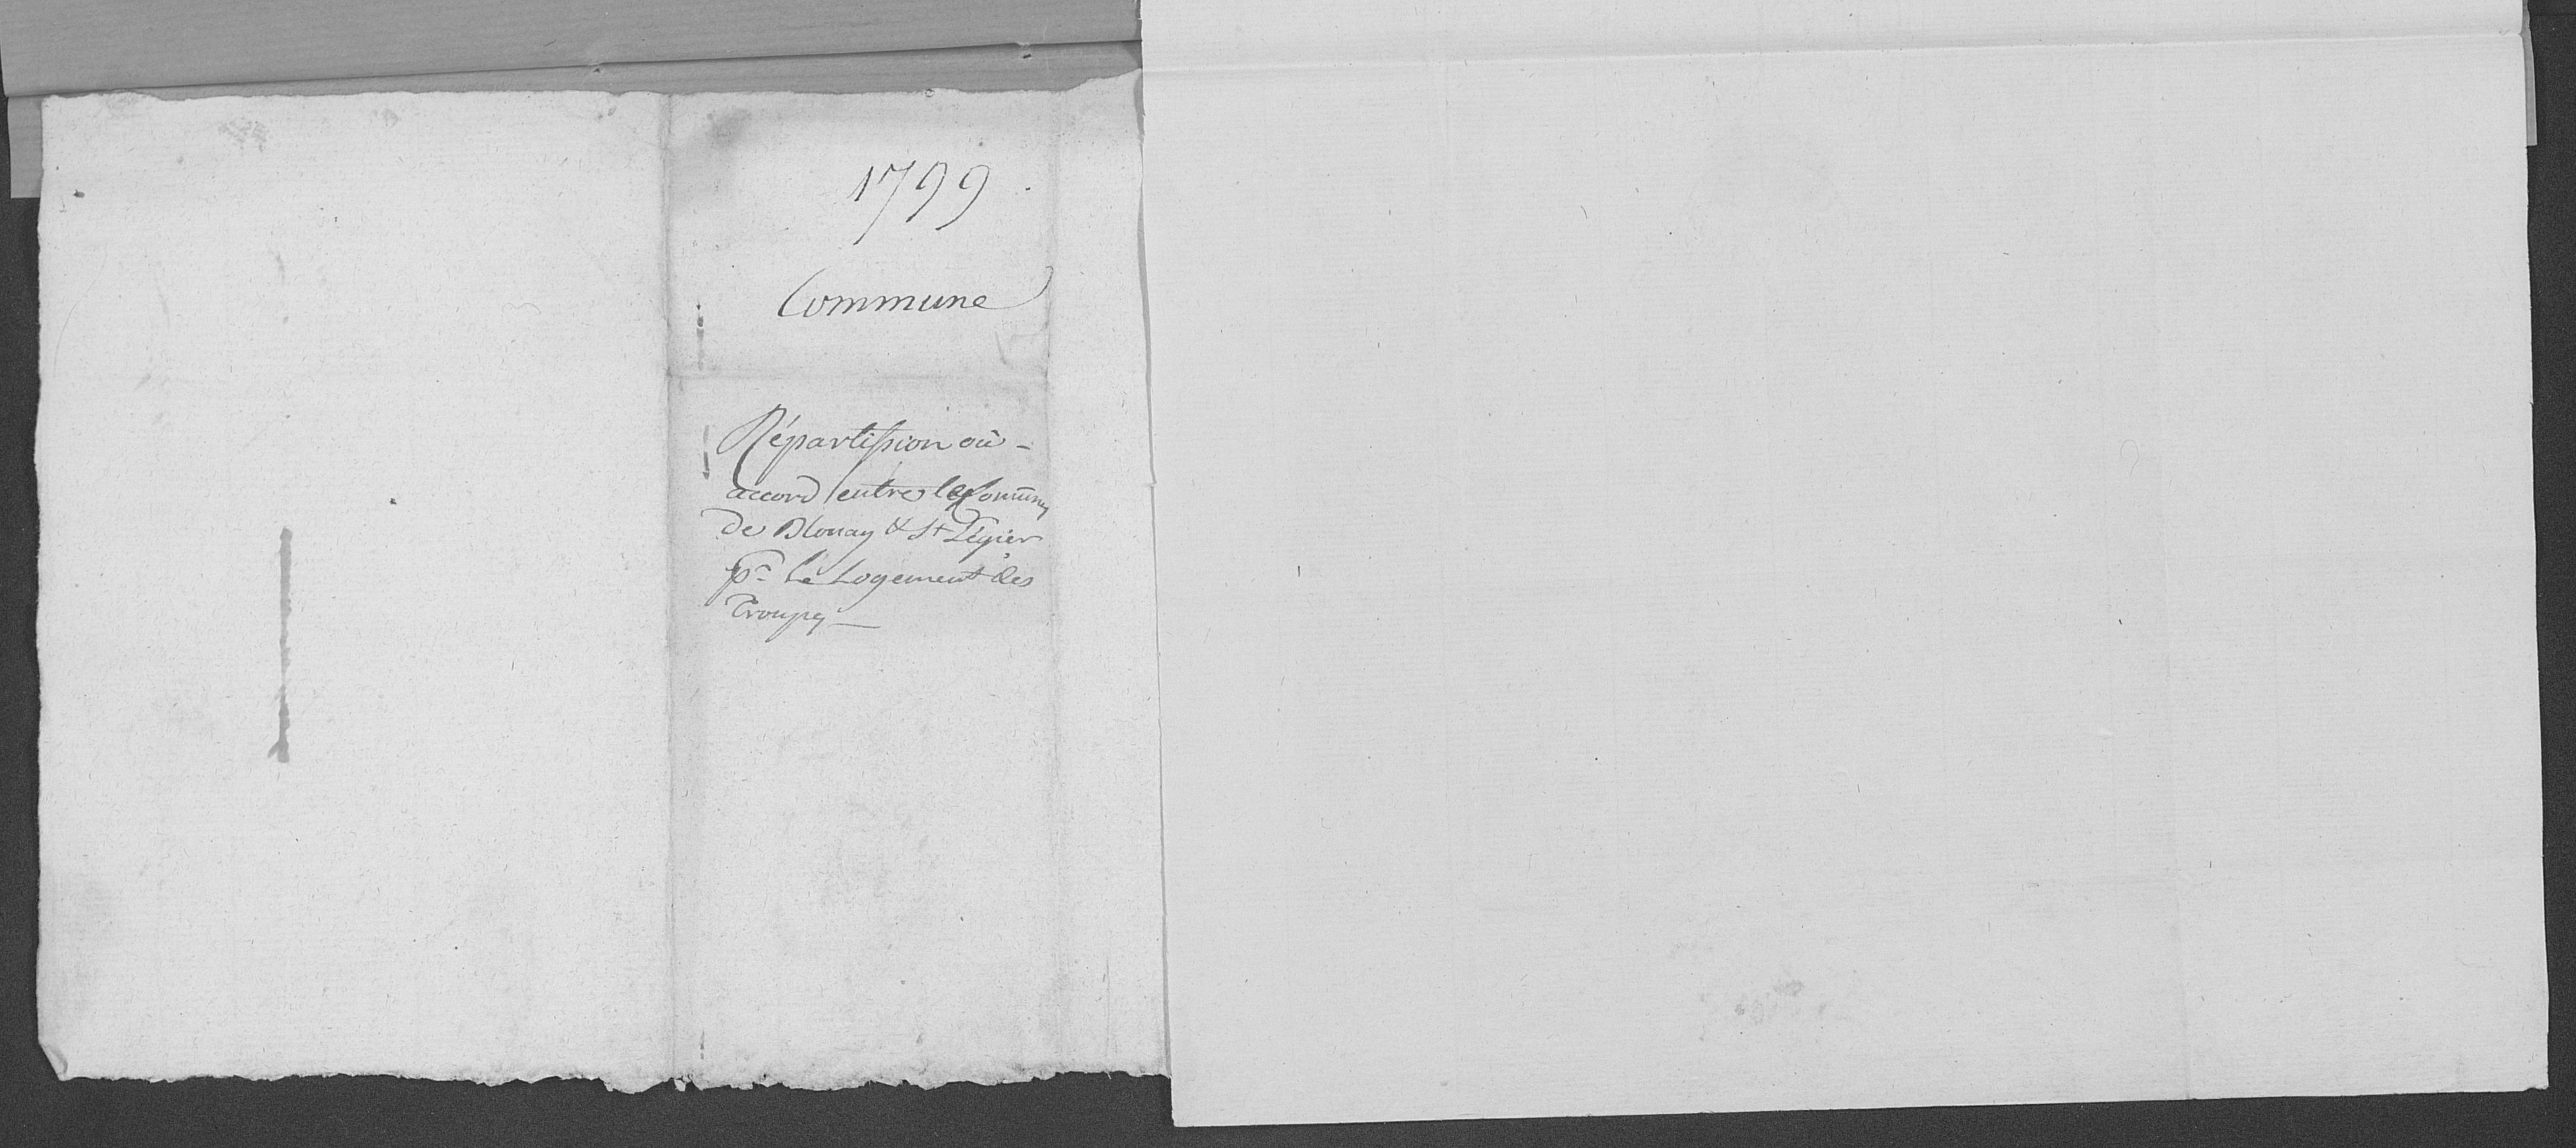 1799.
Commune
Répartission où -
accord entre les Comunes
de Blonay & St Légier
pr le Logement des
Troupes —